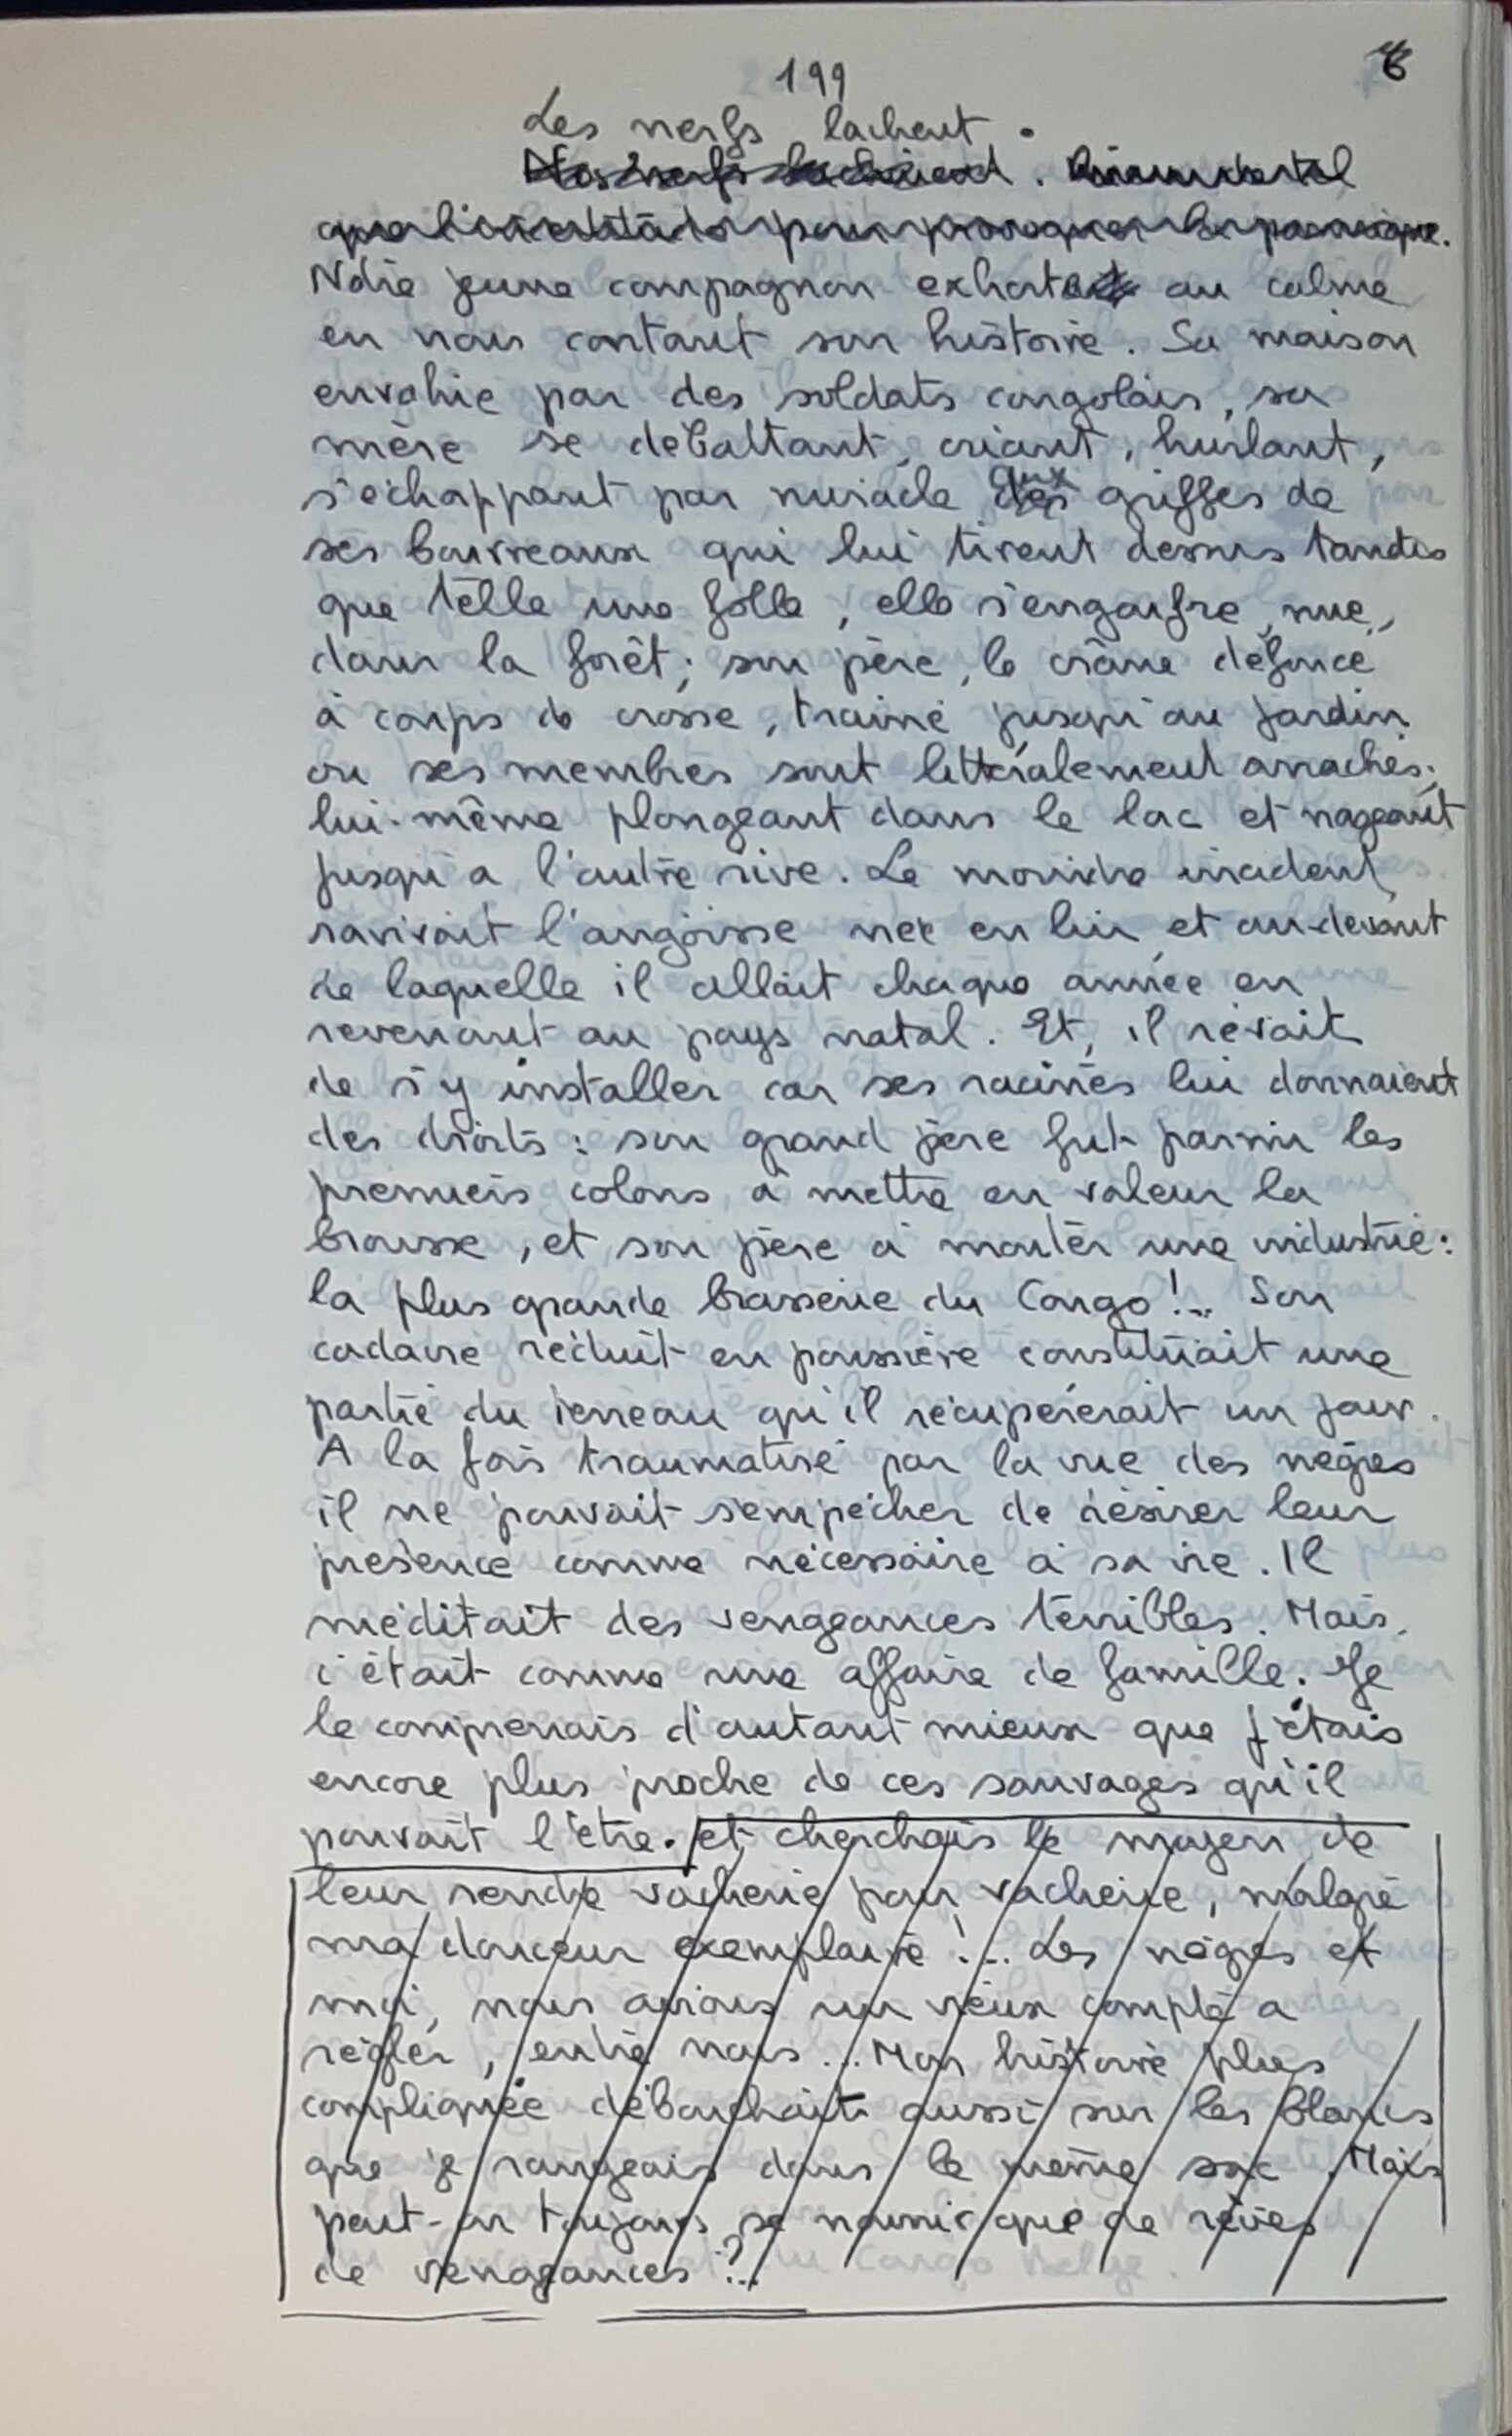 199
6
Les nerfs lachent.
Nos nerfs lachent.
que l'incertitude pour provoquer la panique.
Notre jeune compagnon exhorte au calme
en nous contant son histoire. Sa maison
envahie par des soldats congolais, sa
mère se débattant, criant, hurlant,
s'échappant par miracle aux griffes de
ses bourreaux qui lui tirent dessus tandis
que telle une folle, elle s'engouffre, nue,
dans la forêt; son père, le crâne défoncé
à coups de crosse, trainé jusqu'au jardin
ou ses membres sont littéralement arrachés;
lui-même plongeant dans le lac et nageant
jusqu'à l'autre rive. Le moindre incident
ravivait l'angoisse née en lui et au-devant
de laquelle il allait chaque année en
revenant au pays natal. Et, il rêvait
de s'y installer car ses racines lui donnaient
des droits : son grand père fut parmi les
premiers colons à mettre en valeur la
brousse, et son père à monter une industrie:
la plus grande brasserie du Congo!... Son
cadavre réduit en poussière constituait une
partie du terreau qu'il récupérerait un jour.
A la fois traumatisé par la vue des nègres
il ne pouvait s'empêcher de désirer leur
présence comme nécessaire à sa vie. Il
méditait des vengeances terribles. Mais,
c'était comme une affaire de famille. Je
le comprenais d'autant mieux que j'étais
encore plus proche de ces sauvages qu'il
pouvait l'être. et cherchais le moyen de
leur rendre vacherie pour vacherie, malgré
ma douceur exemplaire!... Les nègres et
moi, nous avions un vieux compte a
régler, entre nous... Mon histoire plus
compliquée débouchait aussi sur les blancs
que je rangeais dans le même sac. Mais
peut-on toujours se nourrir que de rêves
de vengeances ?...